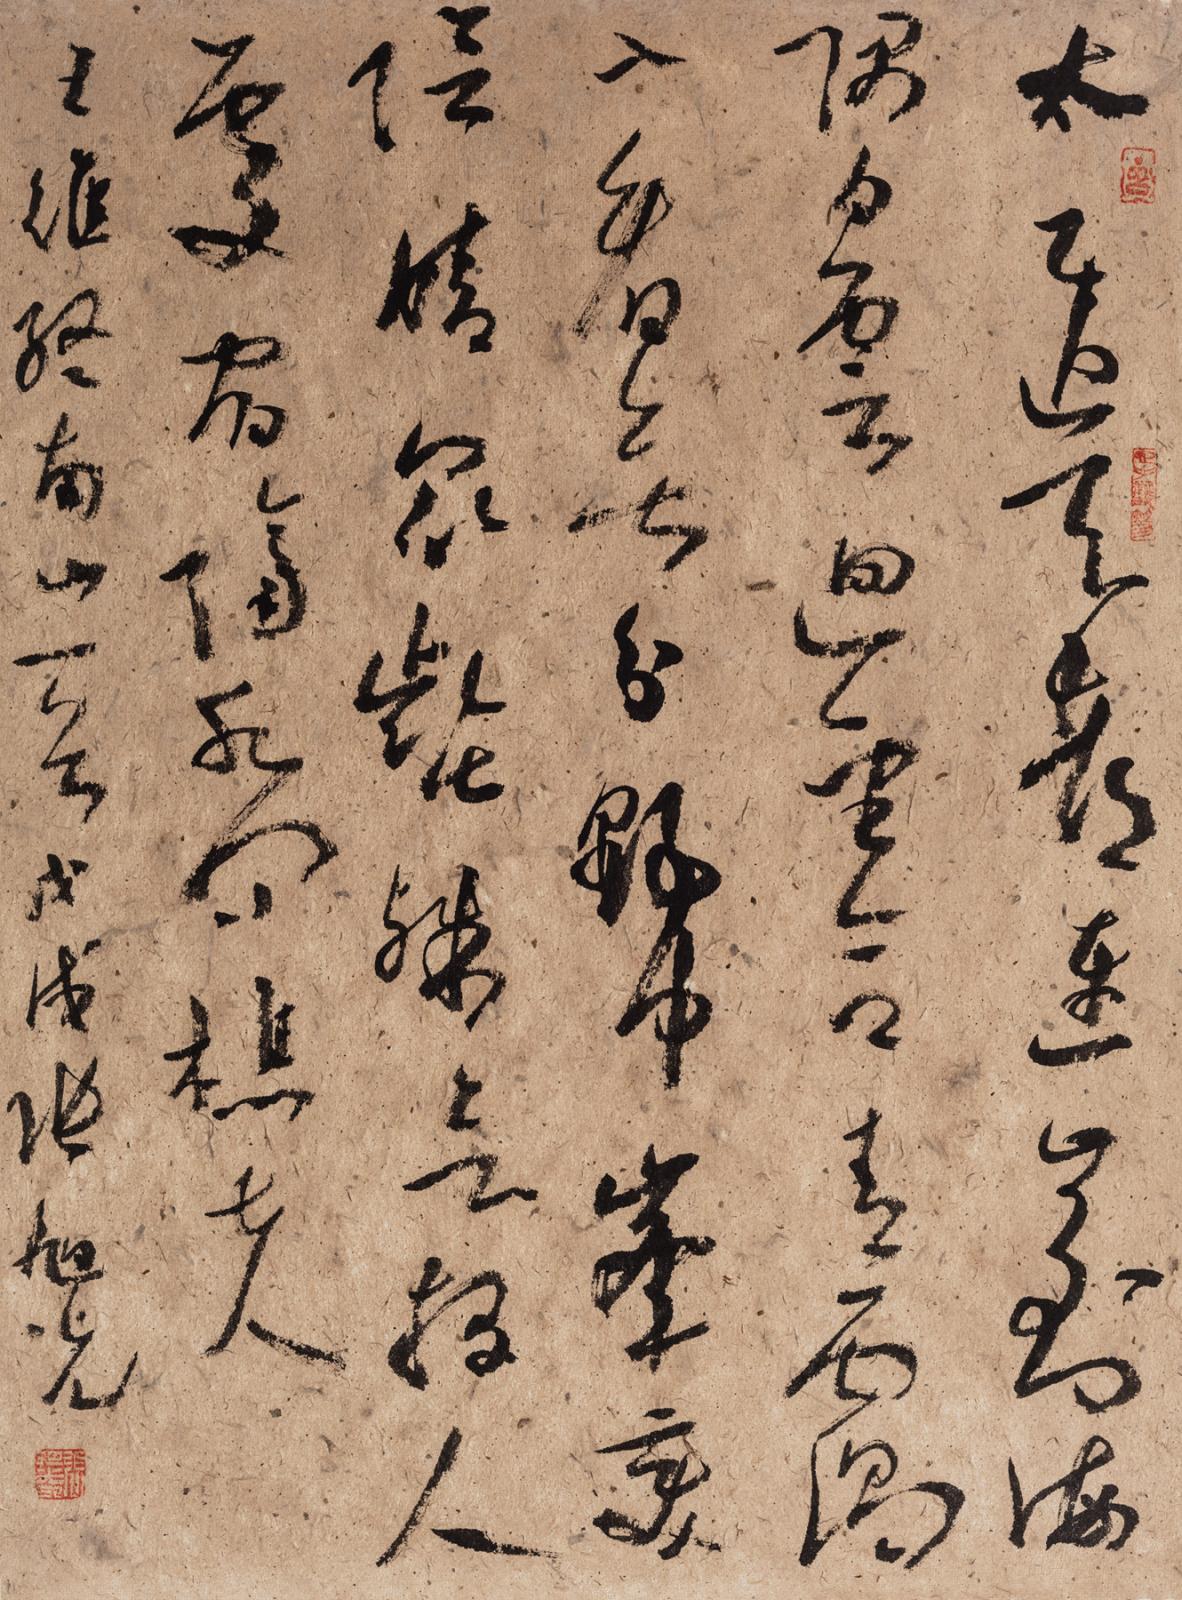 太乙近天都連山到海
隅白雲迴望合青靄
入看無分野中峯變
陰晴眾壑殊欲投人
處宿隔水問樵夫
王維終南山一首戊戌張旭光